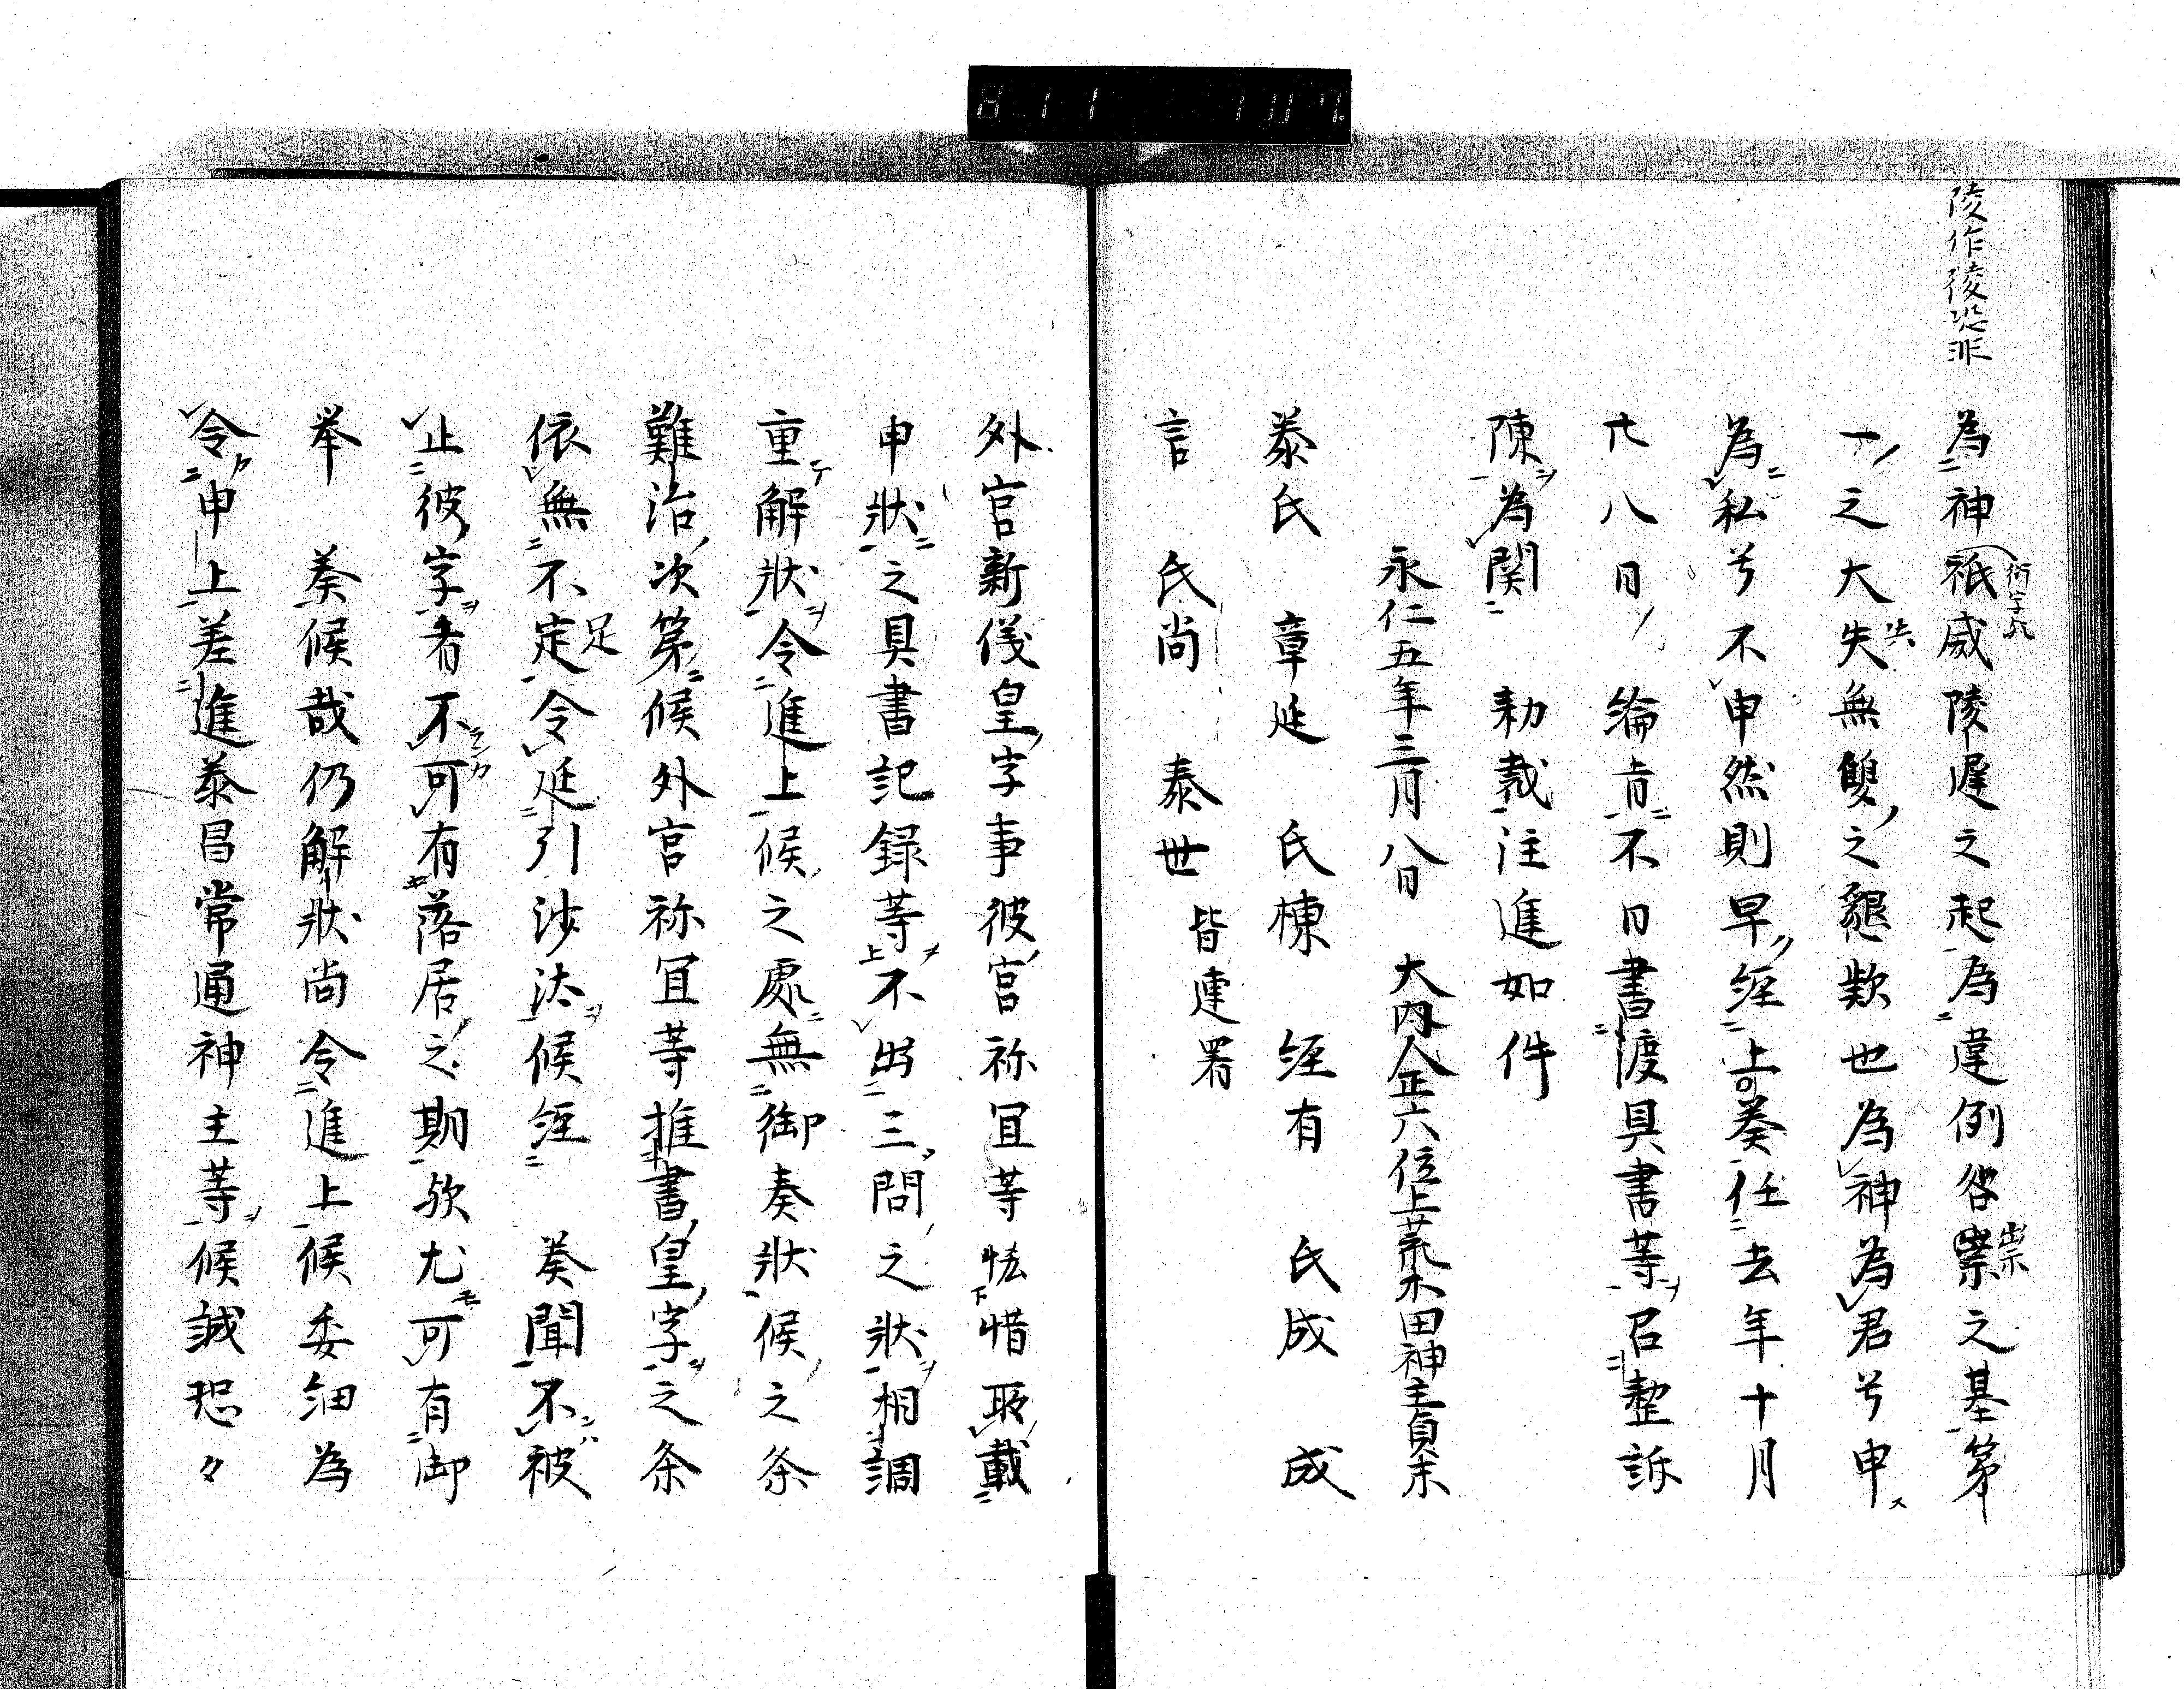 陵作稜恐非
為神祇威陵遅之起為違例咎祟之基第
一之大失無雙之懇歎也為神為君兮申
為私兮不申然則早経上奏任去年十月
廿八日綸旨不日書渡具書等召整訴
陳為関　勅裁注進如件
永仁五年三月八日　大内人正六位上荒木田神主貞末
泰氏　章延　氏棟　経有　氏成　成
言　氏尚　泰世　皆連署
外宮新儀皇字事彼宮祢冝等恡惜取載
申状之具書記録等不出三問之状相調
重解状令進上候之處無御奏状候之条
難治次第候外宮祢冝等推書皇字之条
依無不足令延引沙汰候経　奏聞不被
止彼字者不可有落居之期歟尤可有御
挙　奏候哉仍解状尚令進上候委細為
令申上差進泰昌常通神主等候誠恐々